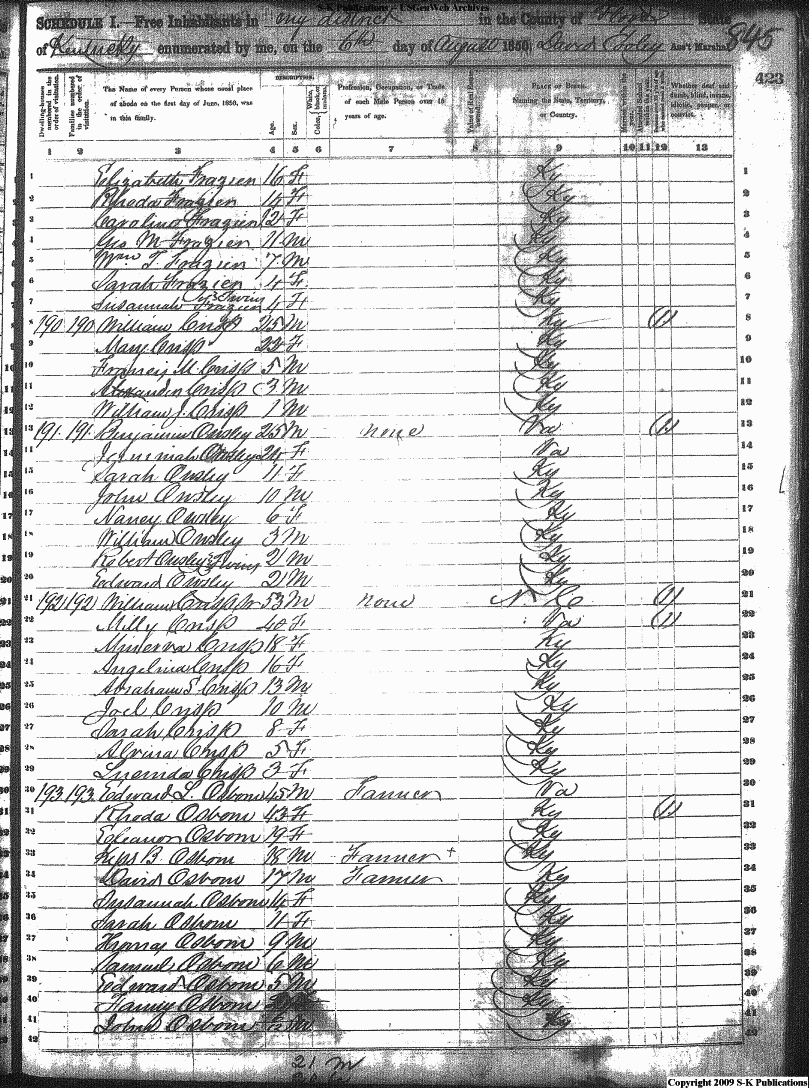 S-K Publications - USGenWeb Archives
SCHEDULE I.—Free Inhabitants in my district in the County of Floyd State
of Kentucky enumerated by me, on the 6th day of August 1850. David Cooley Ass't Marshal 845
423
Dwelling-houses numbered in the order of visitation.
Families numbered in the order of visitation.
The Name of every Person whose usual place of abode on the first day of June, 1850, was in this family.
DESCRIPTION.
Age.
Sex.
Color, White, black, or mulatto.
Profession, Occupation, or Trade of each Male Person over 15 years of age.
Value of Real Estate owned.
PLACE OF BIRTH.
Naming the State, Territory, or Country.
Married within the year.
Whether deaf and dumb, blind, insane, idiotic, pauper, or convict.
1 2 3 4 5 6 7 8 9 10 11 12 13
1 Elizabeth Frazier 16 F Ky 1
2 Rhoda Frazier 14 F Ky 2
3 Caroline Frazier 12 F Ky 3
4 Geo M Frazier 11 M Ky 4
5 Wm T. Frazier 7 M Ky 5
6 Sarah Frazier 4 F Ky 6
7 Susannah Frazier 4 F Ky 7
8 190 190 William Crisp 25 M Ky (1) 8
9 Mary Crisp 22 F Ky 9
10 Francis M Crisp 5 M Ky 10
11 Alexander Crisp 3 M Ky 11
12 William J. Crisp 1 M Ky 12
13 191 191 Benjamin Owsley 25 M none Va (1) 13
14 Owsley 24 F Va 14
15 Sarah Owsley 11 F Ky 15
16 John Owsley 10 M Ky 16
17 Nancy Owsley 6 F Ky 17
18 William Owsley 3 M Ky 18
19 Robert Owsley 2 M Ky 19
20 Edward Owsley 2 M Ky 20
21 192 192 William Crisp Sr 53 M none N. C (1) 21
22 Milly Crisp 40 F Va (1) 22
23 Minerva Crisp 18 F Ky 23
24 Angelina Crisp 16 F Ky 24
25 Abraham S. Crisp 13 M Ky 25
26 Joel Crisp 10 M Ky 26
27 Sarah Crisp 8 F Ky 27
28 Alvina Crisp 5 F Ky 28
29 Lucinda Crisp 3 F Ky 29
30 193 193 Edward L. Osborn 45 M Farmer Va 30
31 Rhoda Osborn 43 F Ky (1) 31
32 Eleanor Osborn 19 F Ky 32
33 Osborn 18 M Farmer + Ky 33
34 David Osborn 17 M Farmer Ky 34
35 Susannah Osborn 14 F Ky 35
36 Sarah Osborn 11 F Ky 36
37 Thomas Osborn 9 M Ky 37
38 Samuel Osborn 6 M Ky 38
39 Edward Osborn 5 M Ky 39
40 Osborn Ky 40
41 John Osborn Ky 41
42
21 M
Copyright 2009 S-K Publications